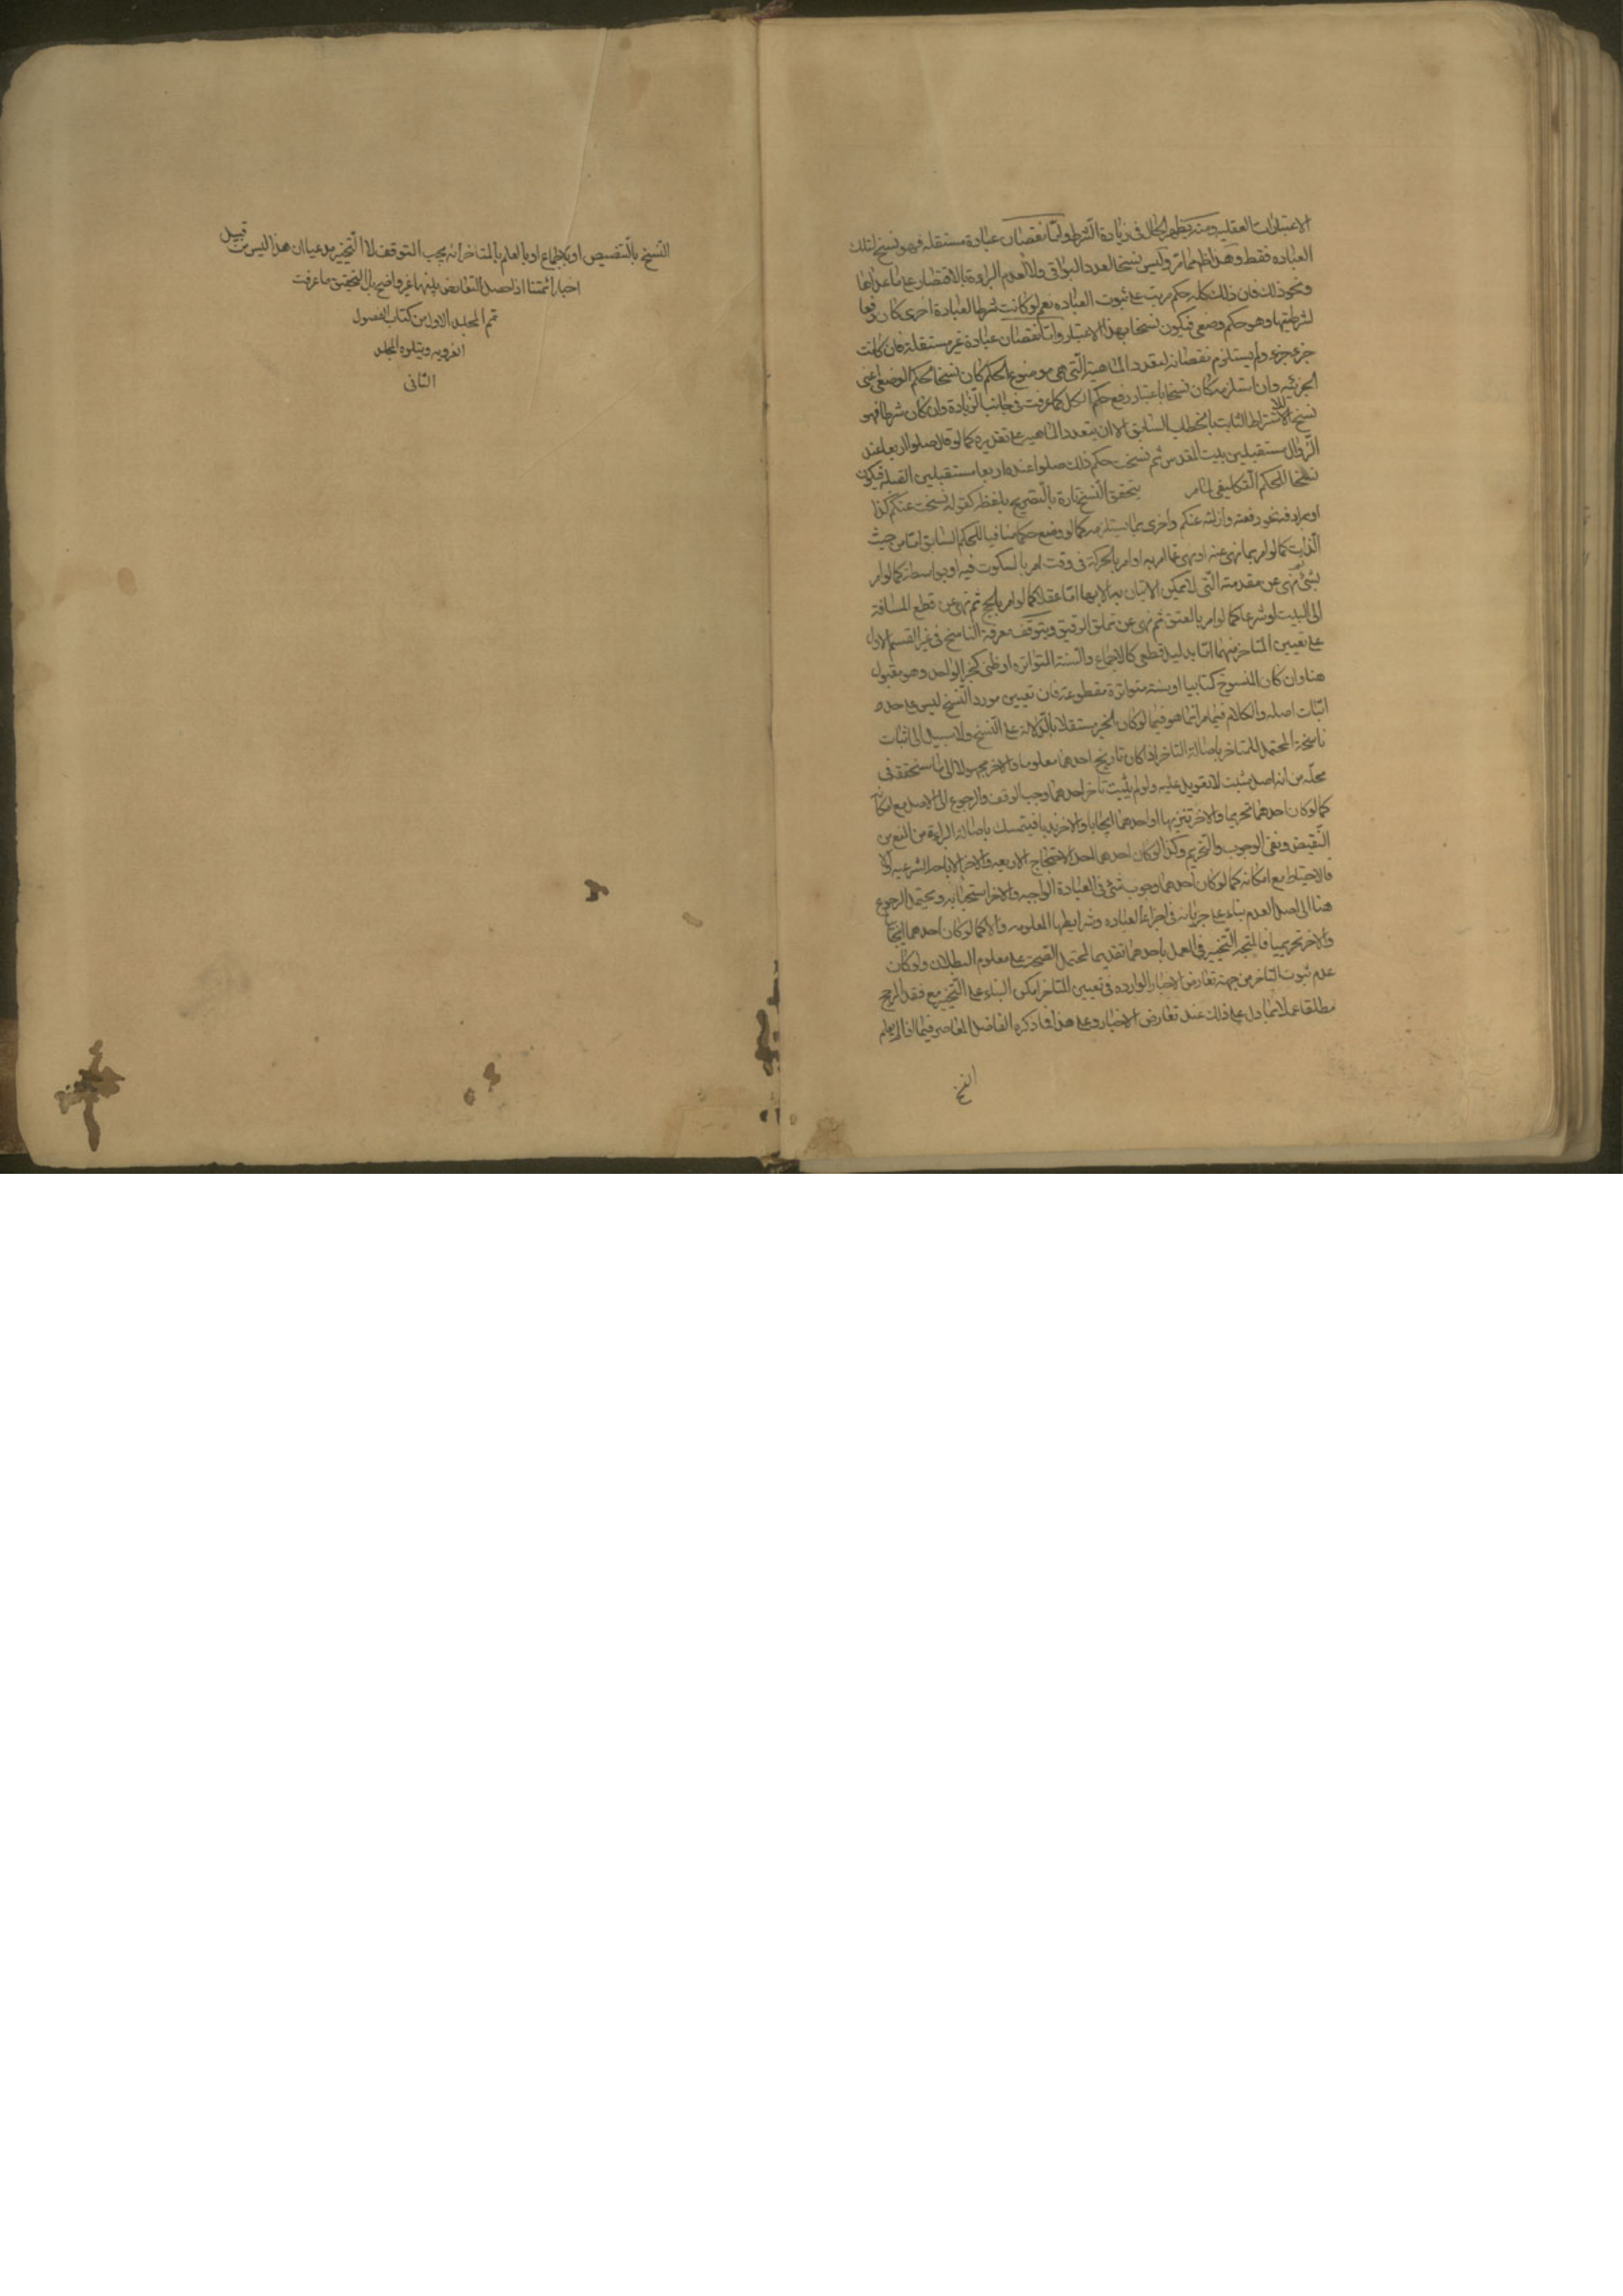 الاعتبارات العقليه ومنه يظهر الحال فى زيادة الشرط وامّا نقصان عبادة مستقله فهو نسخ لتلك
العباده فقط وهذا ظ ممّا مرّ وليس نسخا لعدد البواقى ولا لعدم البراءة بالاقتصار على ما عداها
ونحو ذلك فان ذلك كله حكم مرتب على ثبوت العباده نعم لو كانت شرطا لعبادة اخرى كان رفعا
لشرطيتها وهو حكم وضعى فيكون نسخا بهذا الاعتبار وامّا نقصان عبادة غير مستقلة فان كانت
جزء جزء ولم يستلزم نقصانه لتعدد الماهية الّتى هى موضوع الحكم كان نسخا لحكم الوضعى اعنى
الجزئيه وان استلزمه كان نسخا باعتبار رفع حكم الكل كما عرفت فى جانب الزيادة وان كان شرطا فهو
نسخ للاشتراط الثابت بالخطاب السابق الا ان يتعدد الماهيه على تقديره كما لو قال صلوا اربعا عند
الزّوال مستقبلين بيت المقدس ثم نسخت حكم ذلك صلوا عنده اربعا مستقبلين القبله فيكون
نسخا للحكم التّكليفى لما مر يتحقق النّسخ تارة بالتّصريح بلفظه كقوله نسخت عنكم كذا
او يرادفه نحو رفعته وازلته عنكم واخرى بما يستلزمه كما لو وضع حكما منافيا للحكم السّابق امّا من حيث
الذّات كما لو امر بما نهى عنه او نهى عمّا امر به او امر بالحركة فى وقت امر بالسكوت فيه او بواسطة كما لو امر
بشئ ثم نهى عن مقدمته الّتى لا يمكن الاتيان به الا بها امّا عقلا كما لو امر بالحج ثم نهى عن قطع المسافة
الى البيت او شرعا كما لو امر بالعتق ثم نهى عن تملّق الرقيق ويتوقّف معرفة الناسخ فى غير القسم الاول
على تعيين المتاخر منهما امّا بدليل قطعى كالاجماع والسّنة المتواتره او ظنى كخبر الواحد وهو مقبول
هنا وان كان المنسوخ كتابيا او بسنة متواترة مقطوعة فان تعيين مورد النّسخ ليس على حده
اثبات اصله والكلام فيما مر انّما هو فيما لو كان الخبر مستقلا بالدّلالة على النّسخ ولا سبيل الى اثبات
ناسخية المحتمل للمتاخر باصالة التاخر اذا كان تاريخ احدهما معلوما والاخر مجهولا الى ما سنحققه فى
محلّه من انه اصل مثبت لا تعويل عليه ولو لم يثبت تاخر احدهما وجب الوقف والرجوع الى الاصل مع امكانه
كما لو كان احدهما تحريما والاخر تنزيها او احدهما ايجابا والاخر ندبا فيتمسك باصالة البراءة من المنع من
النّقيض ونفى الوجوب والتّحريم وكذا لو كان احدهما احد الاحتجاج الاربعه والاخر الاباحه الشرعيه والا
فالاحتياط مع امكانه كما لو كان احدهما وجوب شئ فى العبادة الواجبه والاخر استحبابه ويحتمل الرجوع
هنا الى اصل العدم بناء على جريانه فى اجزاء العباده وشرايطها المعلومه والا كما لو كان احدهما ايجابيا
والاخر تحريميا فالمتجه التّخيير فى العمل باحدهما تقديما لمحتمل الصّحة على معلوم البطلان ولو كان
عدم ثبوت التاخر من جهة تعارض الاخبار الوارده فى تعيين المتاخر امكن البناء على التّخيير مع فقد المرجح
مطلقا عملا بما دل على ذلك عند تعارض الاخبار وعلى هذا فما ذكره الفاضل المعاصر فيما اذا لم يعلم
النسخ
النّسخ بالتّنصيص او بالاجماع او بالعلم بالمتاخر انه يجب التوقف لا التّخيير مدعيا ان هذا ليس من قبيل
اخبار ائمتنا اذا حصل التعارض بينها غير واضح بل التحقيق ما عرفت
تم المجلد الاول من كتاب الفصول
الغرويه ويتلوه المجلد
الثانى